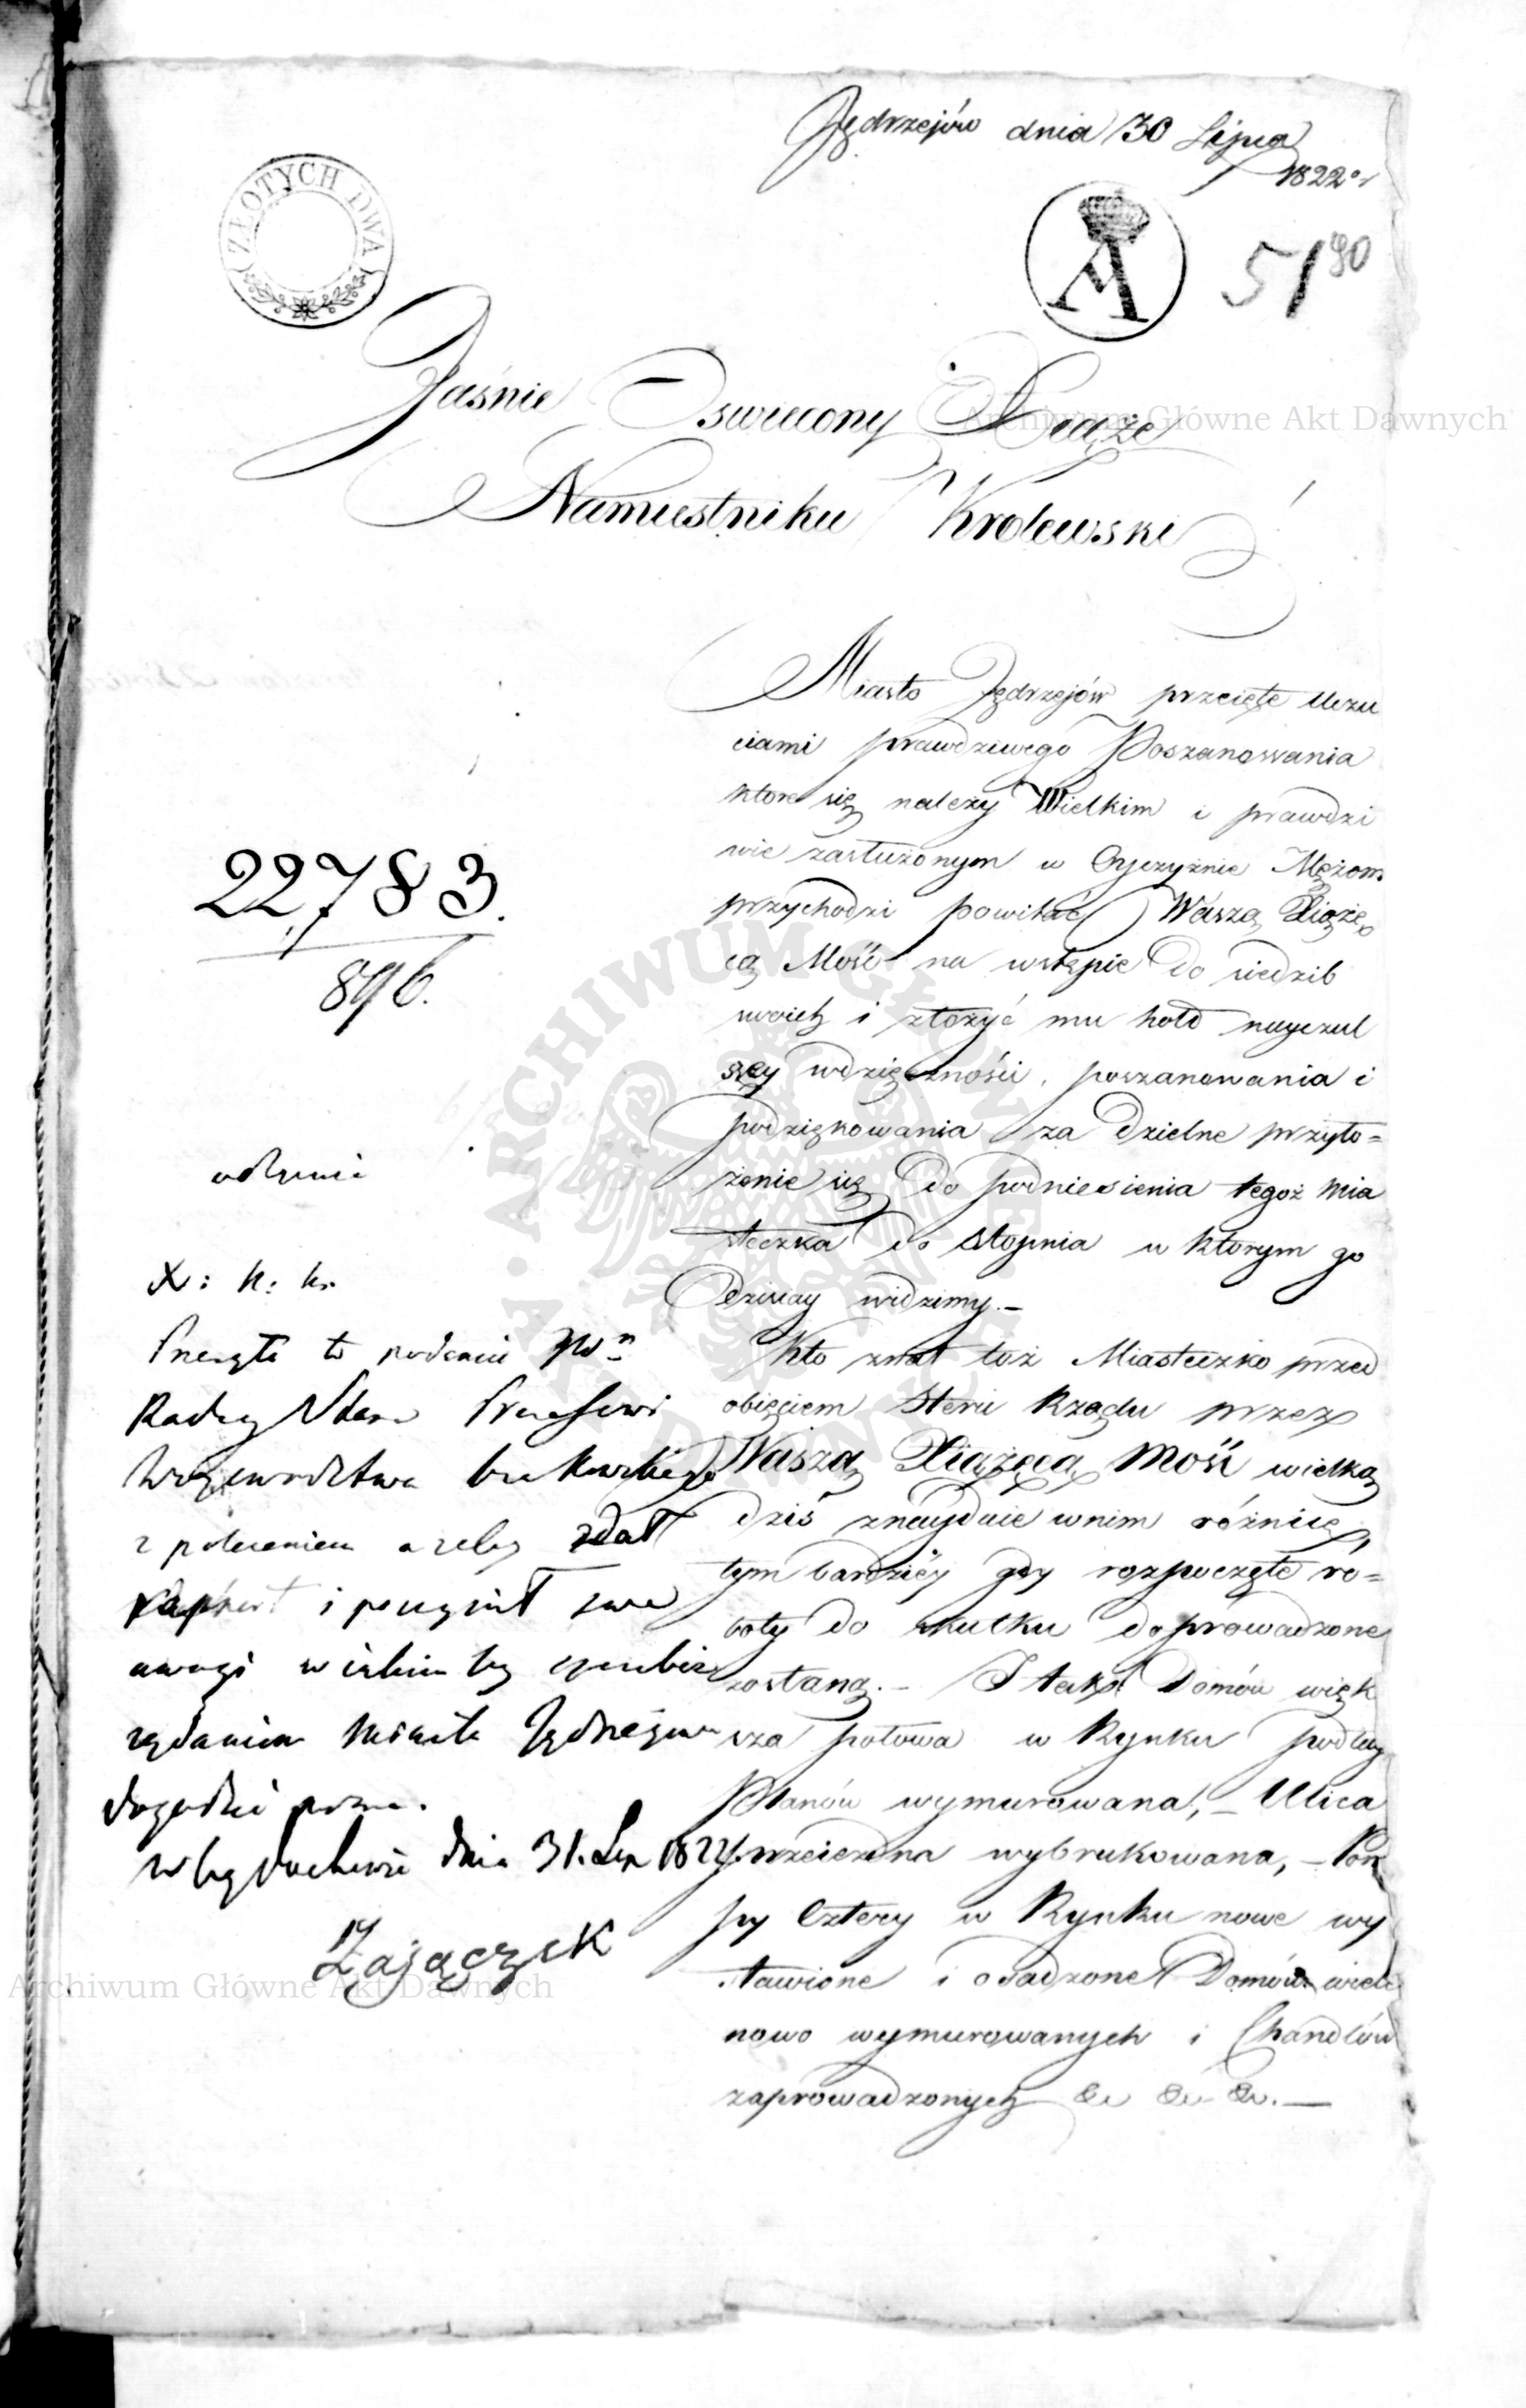 Jędrzejów dnia 30 Lipca
1822
ZŁOTYCH DWA
A
51 90
Jaśnie Oswiecony Xiąże
Namiestniku Krolewski
Miasto Jędrzejów przeięte uczu
ciami prawdziwego Poszanowania
ktore się należy Wielkim i prawdzi
wie zasłużonym w Oyczyznie Mężom
przychodzi powitać Waszą Xiążę
cą Mość na wstępie do siedzib
swoich i złożyć mu hołd nayczul
szey wdzięcznośći, poszanowania i
podziękowania za dzielne przyło=
żenie się do podniesienia tegoż mia
steczka do stopnia w ktorym go
dzisiay widzimy.—
Kto znał toż Miasteczko przed
obięciem steru Rządu przez
Waszą Xiążęcą Mość wielką
dziś znayduie w nim różnicę,
tym bardziéy gdy rozpoczęte ro=
boty do skutku doprowadzone
zostaną.— I tak: Domów więk
sza połowa w Rynku podług
Planów wymurowana,— Ulica
przeiezdna wybrukowana,— Pom
py cztery w Rynku nowe wy
stawione i osadzone Domów wiele
nowo wymurowanych i Chandlów
zaprowadzonych &c &c &c.—
22,783.
896.
X: N: Kr.
to podanie
Radcy Stanu Prezesowi
Woiewodztwa Krakowskiego
z poleceniem ażeby zdał
rapport i poczynił swe
uwagi w iakim by sposobie
rządaniom Miasta Jędrzejowa
dogodzić można.
dnia 31. Lip 1822
Zajączek
Archiwum Główne Akt Dawnych
ARCHIWUM GŁÓWNE AKT DAWNYCH
Archiwum Główne Akt Dawnych